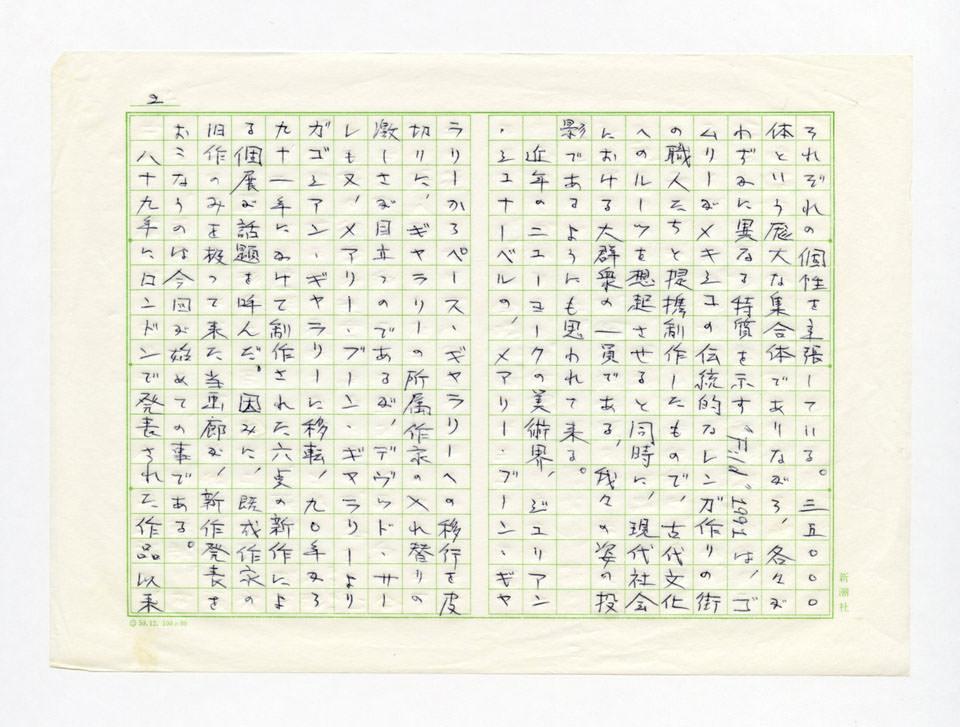 2
それぞれの個性を主張している。三五〇〇〇
体という厖大な集合体でありながら、各々が
わずかに異なる特質を示す"Fild"1991は、ゴ
ムリーがメキシコの伝統的なレンガ作りの街
の職人たちと提携制作したもので、古代文化
へのルーツを想起させると同時に、現代社会
における大群衆の一員である、我々の姿の投
影であるようにも思われて来る。
近年のニューヨークの美術界、ジュリアン
・シュナーベルの、メアリー・ブーン・ギャ
ラリーからペース・ギャラリーへの移行を皮
切りに、ギャラリーの所属作家の入れ替りの
激しさが目立つのであるが、デヴィッド・サー
レも又、メアリー・ブーン・ギャラリーより
ガゴシアン・ギャラリーに移転、九〇年から
九十一年にかけて制作された六点の新作によ
る個展が話題を呼んだ。因みに、既成作家の
旧作のみを扱って来た当画廊が、新作発表を
おこなうのは今回が始めての事である。
八十九年にロンドンで発表された作品以来
新潮社
59.12. 100×